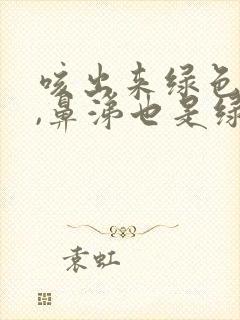 咳出来绿色
,鼻涕也是绿
袁虹